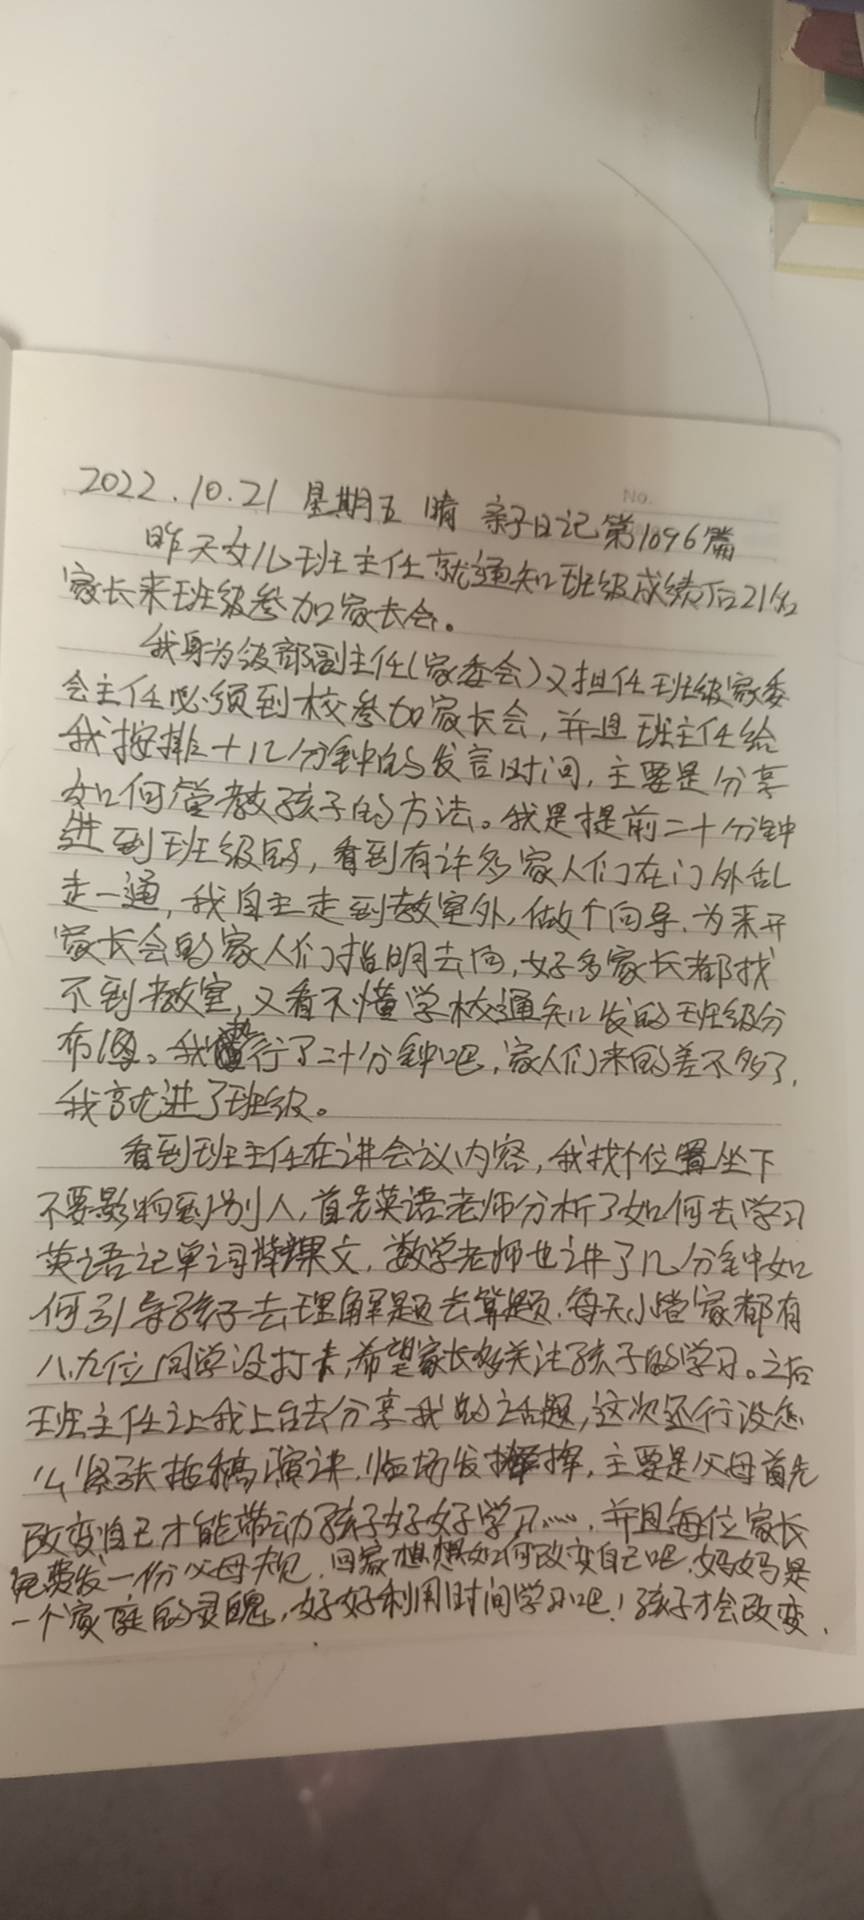 No.
2022.10.21 星期五 晴 亲子日记第1096篇
昨天女儿班主任就通知班级成绩后21名
家长来班级参加家长会。
我身为级部副主任(家委会)又担任班级家委
会主任必须到校参加家长会,并且班主任给
我按排十几分钟的发言时间,主要是分享
如何管教孩子的方法。我是提前二十分钟
进到班级的,看到有许多家人们在门外乱
走一通,我自主走到教室外,做个向导.为来开
家长会的家人们指明去向,好多家长都找
不到教室,又看不懂学校通知发的班级分
布图。我行了二十分钟吧,家人们来的差不多了,
我就进了班级。
看到班主任在讲会议内容,我找个位置坐下
不要影响到别人,首先英语老师分析了如何去学习
英语记单词课文,数学老师也讲了几分钟如
何引导孩子去理解题去算题.每天小管家都有
八.九位同学没打卡,希望家长多关注孩子的学习。之后
班主任让我上台去分享我的话题,这次还行没怎
么紧张拓稿演讲.临场发挥,主要是父母首先
改变自己才能带动孩子好好学习......,并且每位家长
免费发一份父母规.回家想想如何改变自己吧.妈妈是
一个家庭的灵魂,好好利用时间学习吧!孩子才会改变.